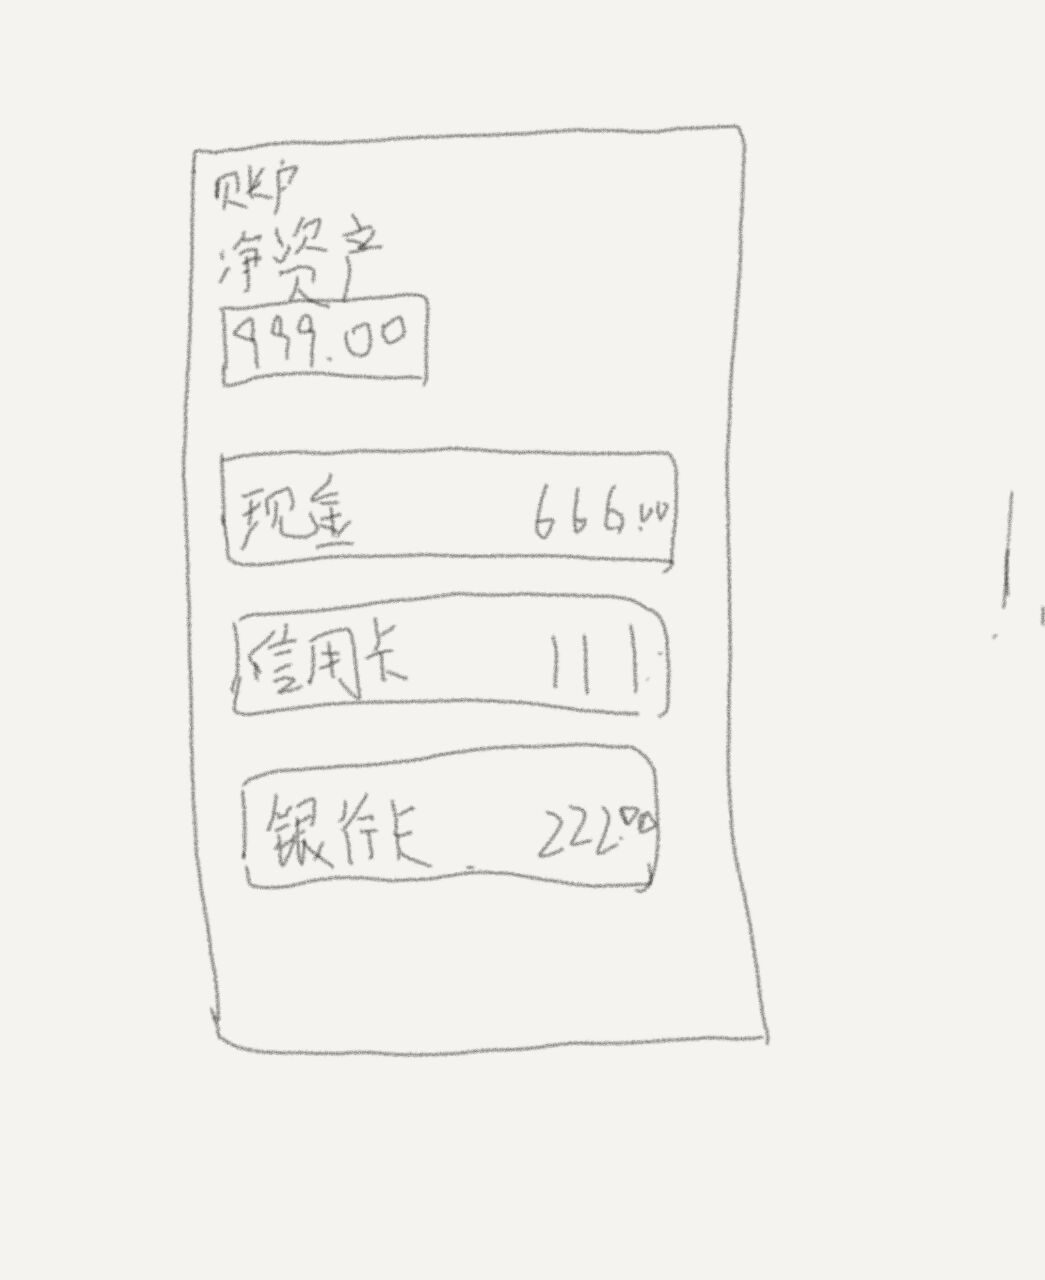 账户
净资产
999.00
现金 666.00
信用卡 111
银行卡 222.00